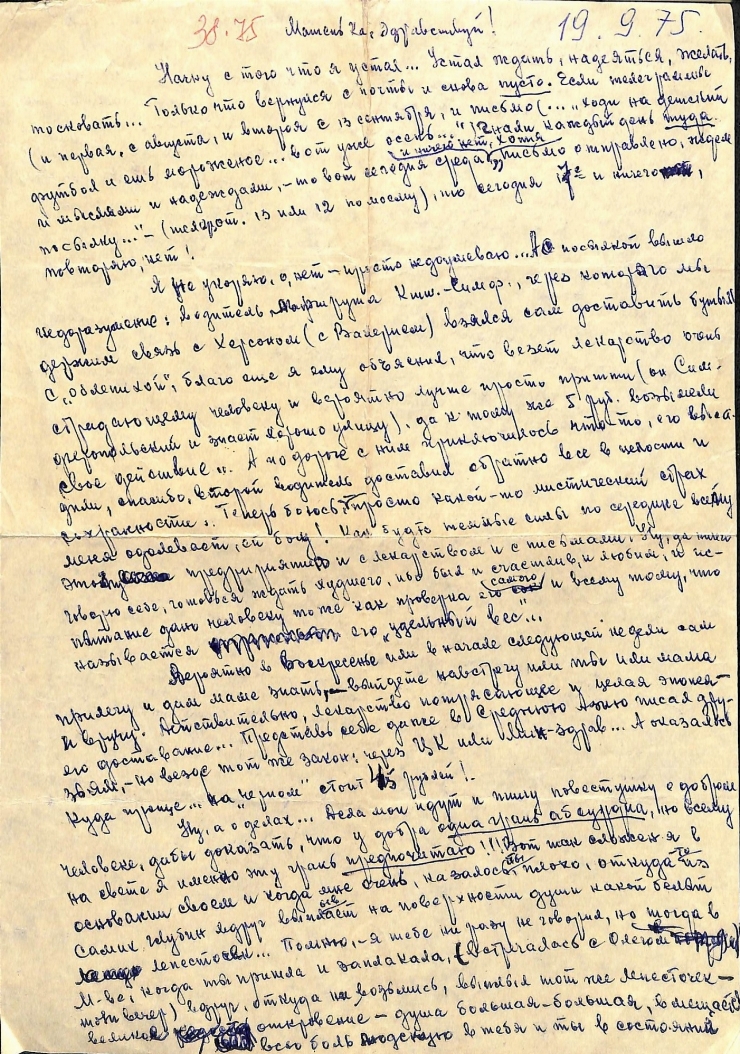 38.75
Машенька, здравствуй!
19.9.75.
Начну с того что я устал... Устал ждать, надеяться, желать,
тосковать... Только что вернулся с почты и снова пусто. Если телеграммы
(и первая, с августа, и вторая с 13 сентября, и письмо (... "ходи на детский
футбол и ешь мороженое... вот уже осень..." гнали каждый день туда
и ничего нет, хотя
и мыслями и надеждами, – то вот сегодня среда, письмо отправлено, ждем
посылку..." – (13 или 12 по моему), но сегодня 17е и ничего,
повторяю, нет!
Я не укоряю, о, нет – просто недоумеваю... А с посылкой вышло
недоразумение: водитель маршрута Киш.-Симф., через которого мы
держим связь с Херсоном (с Валерием) взялся сам доставить бутыль
с "облепихой", благо еще я ему объяснил, что везет лекарство очень
страдающему человеку и вероятно лучше просто прийти (он Сим-
феропольский и знает хорошо улицу), да к тому же 5 руб. возымели
свое действие... А по дороге с ним приключилось что-то, его выса-
дили, спасибо, второй водитель доставил обратно все в целости и
сохранности. Теперь боюсь: просто какой-то мистический страх
меня одолевает, ей богу! Как будто темные силы по середине всему
этому предприятию и с лекарством и с письмами. Ну, да ничего
говорю себе, готовься ждать худшего, ибо был и счастлив, и любим, и ис-
пытание дано человеку тоже как проверка его самого и всему тому, что
называется его "удельный вес"...
Вероятно в Воскресенье или в начале следующей недели сам
прилечу и дам маме знать, – выйдете навстречу или ты или мама
и вручу. Действительно, лекарство потрясающее и целая эпопея
его доставание... Представь себе даже в Среднюю Азию писал дру-
зьям, – но везде тот же закон: через ЦК или Мин-здрав... А оказалось
куда проще... на "черном" стоит 45 рублей!
Ну, а о делах... Дела мои идут и пишу повестушку о добром
человеке, дабы доказать, что у добра одна грань абсурдна, но всему
на свете я именно эту грань предпочитаю!!! Вот так сложен я в
основании своем и когда мне очень, казалось бы, плохо, откуда то из
самих глубин вдруг выплывает на поверхности души какой белый
лепесток... Помню, – я тебе ни разу не говорил, но тогда в
М-ве, когда ты пришла и заплакала, (встречалась с Олегом
тот вечер) вдруг, откуда ни возьмись, выплыл тот же лепесточек –
великое откровение – душа большая-большая, вмещается
всю боль людскую в тебя и ты в состоянии